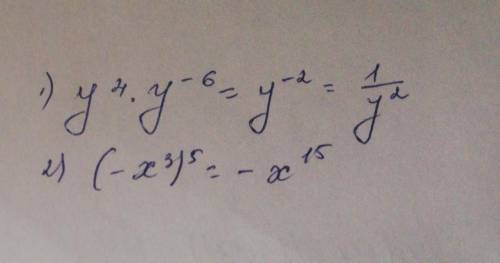 1) y⁴ · y⁻⁶ = y⁻² = 1/y²
2) (-x³)⁵ = -x¹⁵